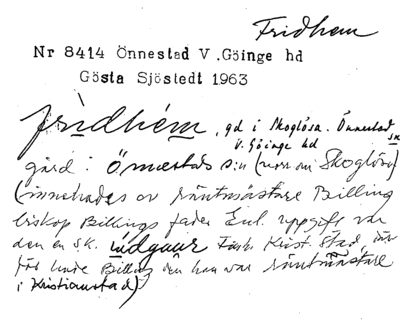 Fridhem
Nr 8414 Önnestad V .Göinge hd
Gösta Sjöstedt 1963
fridhem, gd i Skoglösa. Önnestad sn
V. Göinge hd
gård i Önnestads s:n (norr om Skoglösa)
(innehades av räntmästare Billing
biskop Billings fader Enl. uppgift var
den en s.k. údgaur Kist. Stad, där
för hade Billing den han var räntmästare
i Kristianstad)